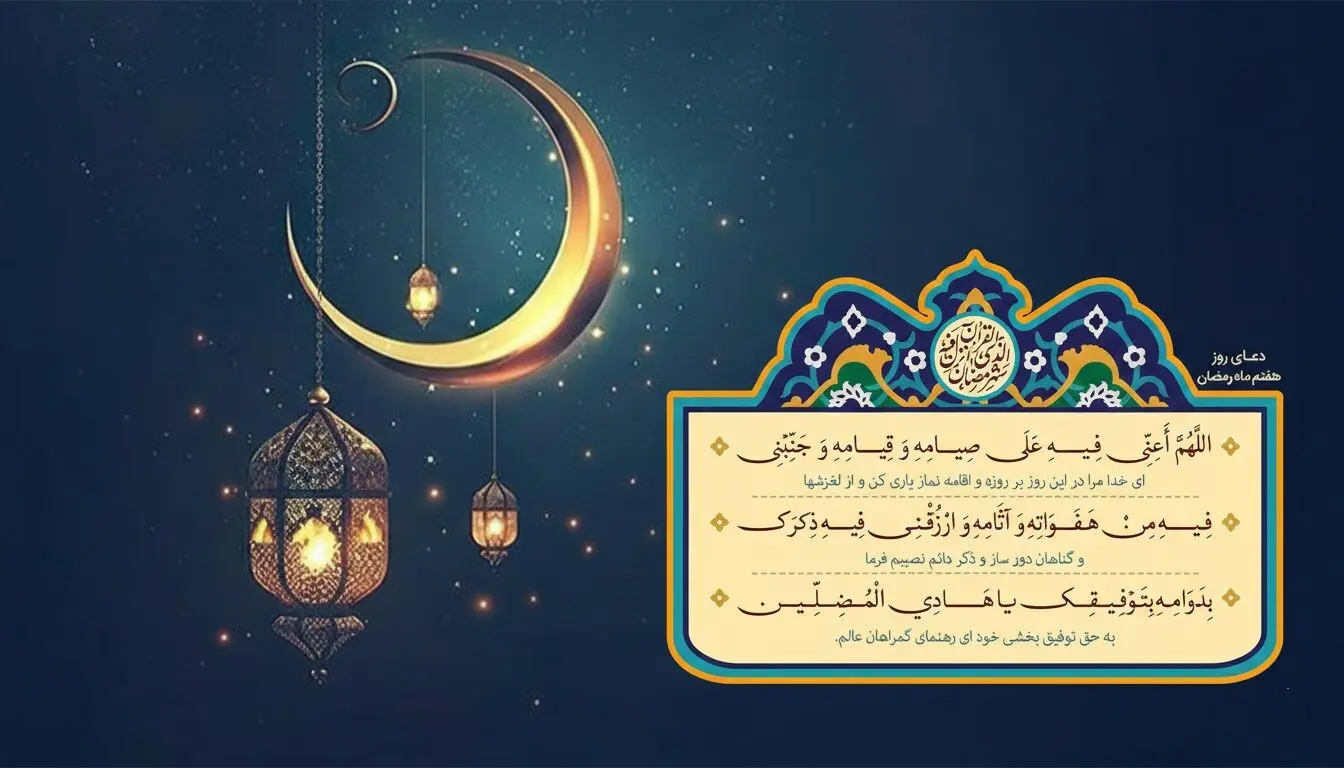 شهر رمضان الذي أنزل فيه القرآن
دعای روز
هفتم ماه رمضان
اللَّهُمَّ أَعِنِّي فِيهِ عَلَى صِيَامِهِ وَ قِيَامِهِ وَ جَنِّبْنِي
ای خدا مرا در این روز بر روزه و اقامه نماز یاری کن و از لغزشها
فِيهِ مِنْ هَفَوَاتِهِ وَ آثَامِهِ وَ ارْزُقْنِي فِيهِ ذِكْرَكَ
و گناهان دور ساز و ذکر دائم نصیبم فرما
بِدَوَامِهِ بِتَوْفِيقِكَ يَا هَادِيَ الْمُضِلِّينَ
به حق توفیق بخشی خود ای رهنمای گمراهان عالم.